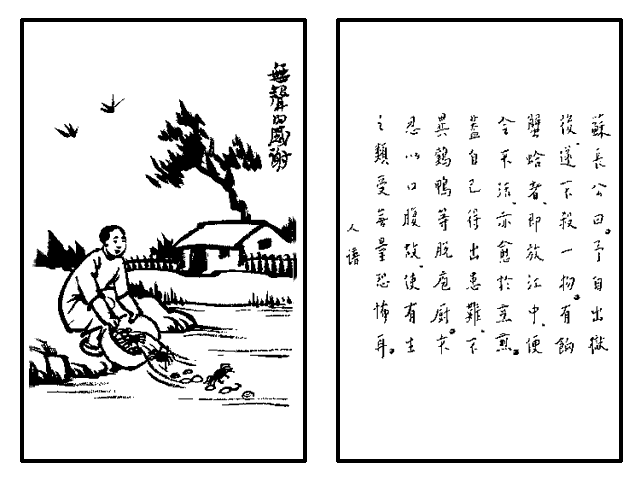 無聲的感謝
蘇長公曰。予自出獄
後、遂不殺一物。有餉
蟹蛤者、即放江中、便
令不活、亦愈於烹煎。
蓋自己得出患難、不
異鷄鴨等脫庖厨。不
忍以口腹故、使有生
之類受無量恐怖耳。
人譜